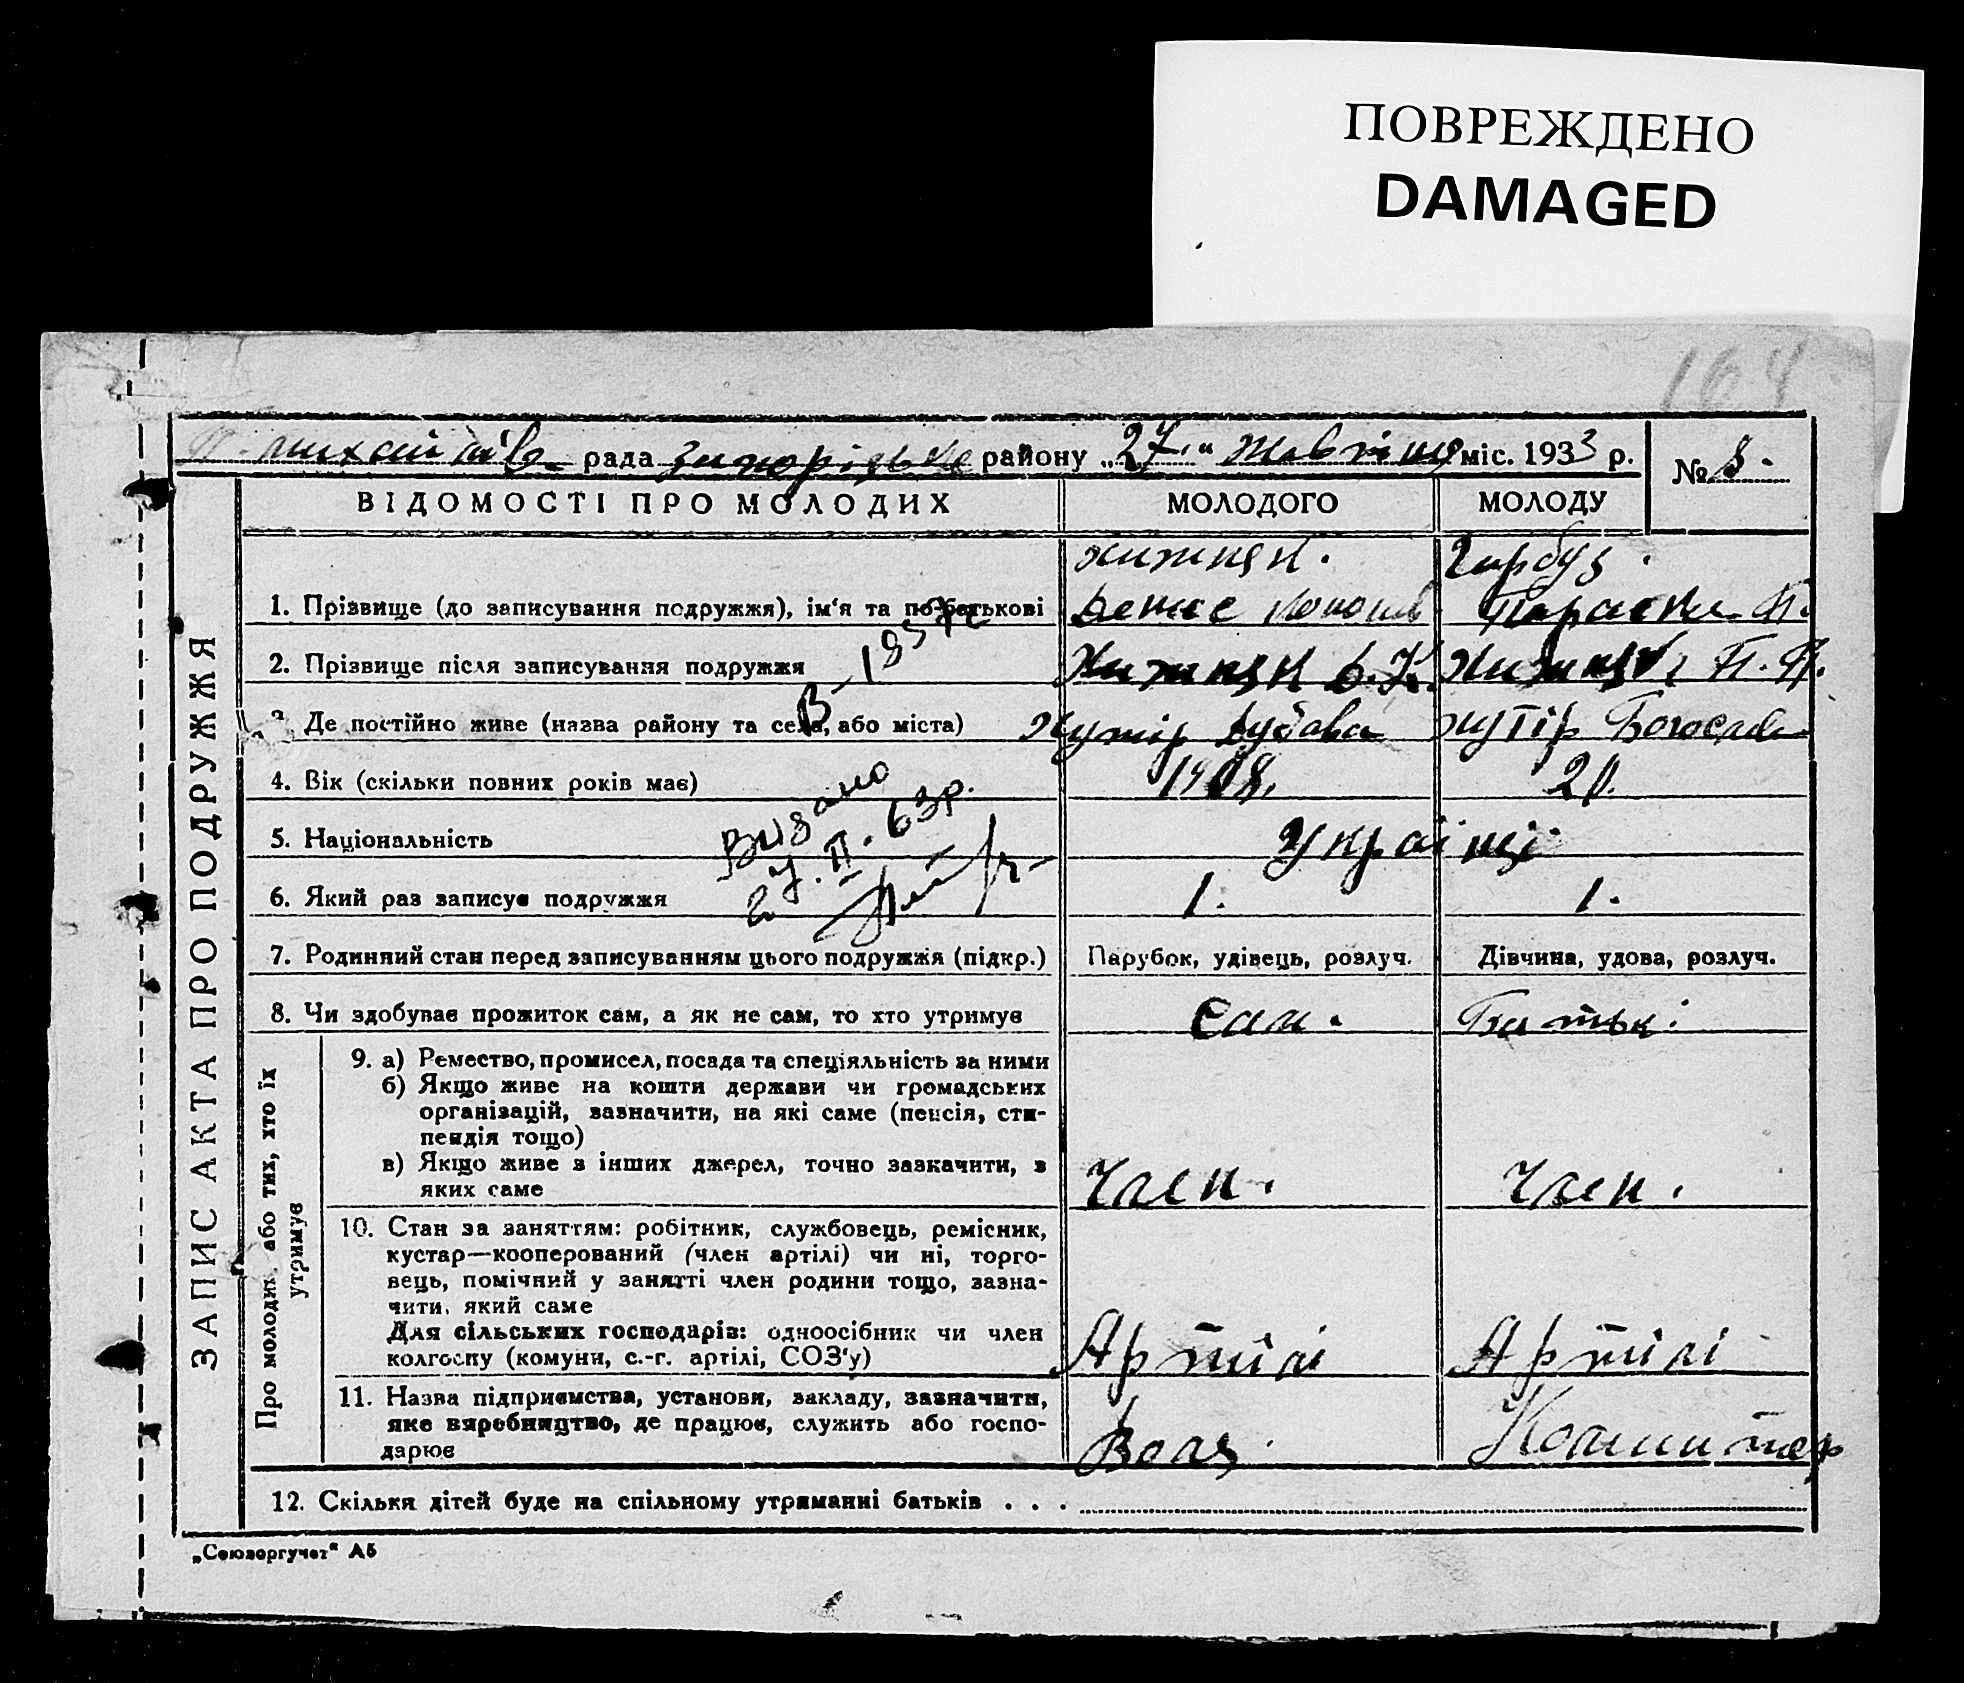 ПОВРЕЖДЕНО
DAMAGED
164
рада району „27“ Жовтня міс. 1933 р. № 8.
ВІДОМОСТІ ПРО МОЛОДИХ МОЛОДОГО МОЛОДУ
ЗАПИС АКТА ПРО ПОДРУЖЖЯ
Хижняк. Гарбуз.
1. Прізвище (до записування подружжя), ім'я та по-батькові Параска П.
2. Прізвище після записування подружжя Хижняк Хижняк П. П.
3. Де постійно живе (назва району та села, або міста) хутір Дубова хутір
4. Вік (скільки повних років має) 1908. 20.
Видано
27.II.63р.
5. Національність Українці
6. Який раз записує подружжя 1. 1.
7. Родинний стан перед записуванням цього подружжя (підкр.) Парубок, удівець, розлуч. Дівчина, удова, розлуч.
8. Чи здобуває прожиток сам, а як не сам, то хто утримує Сам. Батьк.
Про молодих, або тих, хто їх утримує
9. а) Ремество, промисел, посада та спеціяльність за ними
б) Якщо живе на кошти держави чи громадських
організацій, зазначити, на які саме (пенсія, сти-
пендія тощо)
в) Якщо живе з інших джерел, точно зазначити, з
яких саме Член. Член.
10. Стан за заняттям: робітник, службовець, ремісник,
кустар—кооперований (член артілі) чи ні, торго-
вець, помічний у занятті член родини тощо, зазна-
чити, який саме
Для сільських господарів: одноосібник чи член
колгоспу (комуни, с.-г. артілі, СОЗ'у) Артілі Артілі
11. Назва підприємства, установи, закладу, зазначити,
яке виробництво, де працює, служить або госпо-
дарює Воля. Комінтер
12. Скільки дітей буде на спільному утриманні батьків . . .
„Союзоргучет" А5